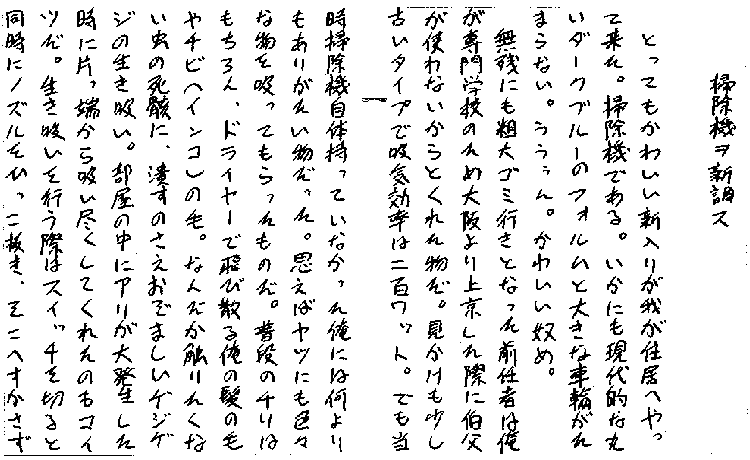 掃除機ヲ新調ス
とってもかわいい新入りが我が住居へやっ
て来た。掃除機である。いかにも現代的な丸
いダークブルーのフォルムと大きな車輪がた
まらない。ううん。かわいい奴め。
無残にも粗大ゴミ行きとなった前任者は俺
が専門学校のため大阪より上京した際に伯父
が使わないからとくれた物だ。見かけも少し
古いタイプで吸気効率は二百ワット。でも当
時掃除機自体持っていなかった俺には何より
もありがたい物だった。思えばヤツにも色々
な物を吸ってもらったものだ。普段のチリは
もちろん、ドライヤーで飛び散る俺の髪の毛
やチビヘインコレの毛。なんだか触りたくな
い虫の死骸に、潰すのさえおぞましいゲジゲ
ジの生き吸い。部屋の中にアリが大発生した
時に片っ端から吸い尽くしてくれたのもコイ
ツだ。生き吸いを行う際はスイッチを切ると
同時にノズルをひっこ抜き、そこへすかさず